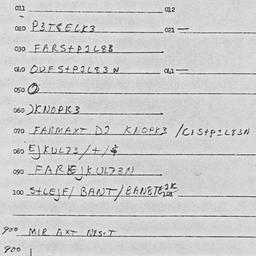 011 012
020 P3T8ELK3 021 —
030 FARS+P2L83
040 OUFS+P2L83N 041 —
050 O
060 )KNOPK3
070 FARMAYT D2 KNOPK3 /CIS+P2L83N
080 EJKUL73/+/$
090 FAREJKUL73N
100 S+LEJF/ BANT/BAN8TE
900 MIR AXT NPS+T
900